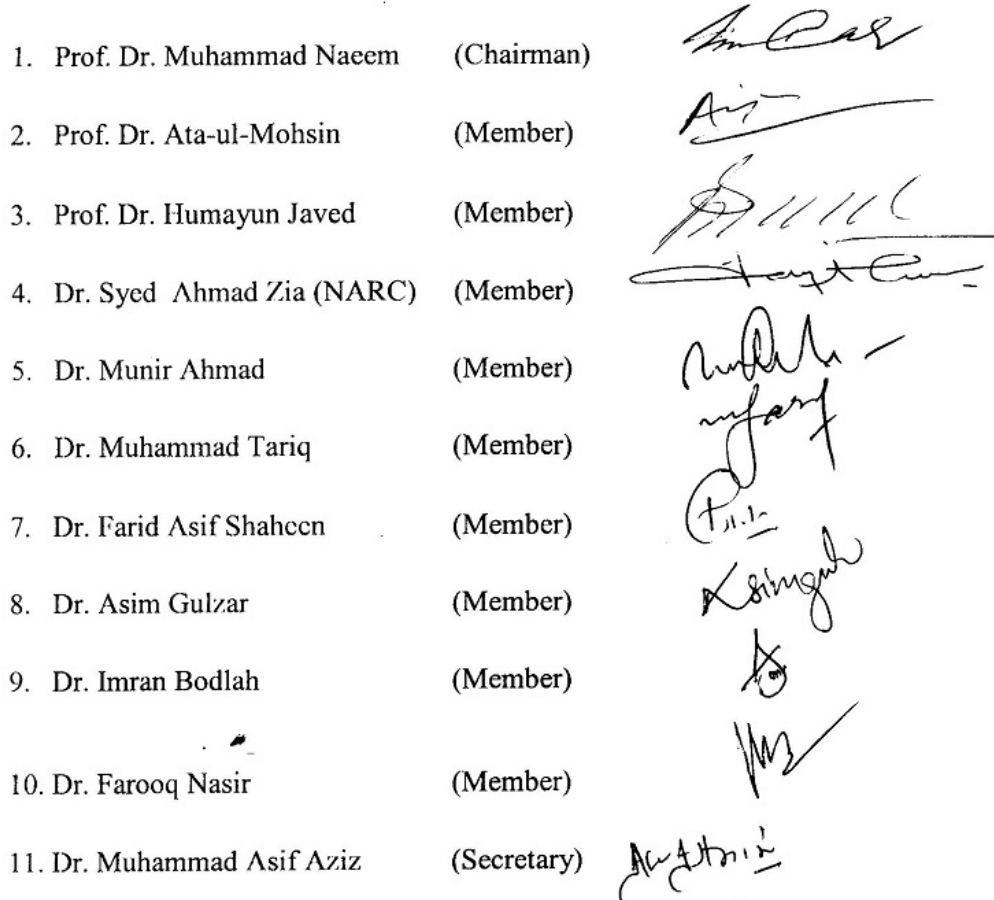 1. Prof. Dr. Muhammad Naeem (Chairman)
2. Prof. Dr. Ata-ul-Mohsin (Member)
3. Prof. Dr. Humayun Javed (Member)
4. Dr. Syed Ahmad Zia (NARC) (Member)
5. Dr. Munir Ahmad (Member)
6. Dr. Muhammad Tariq (Member)
7. Dr. Farid Asif Shaheen (Member)
8. Dr. Asim Gulzar (Member)
9. Dr. Imran Bodlah (Member)
10. Dr. Farooq Nasir (Member)
11. Dr. Muhammad Asif Aziz (Secretary)